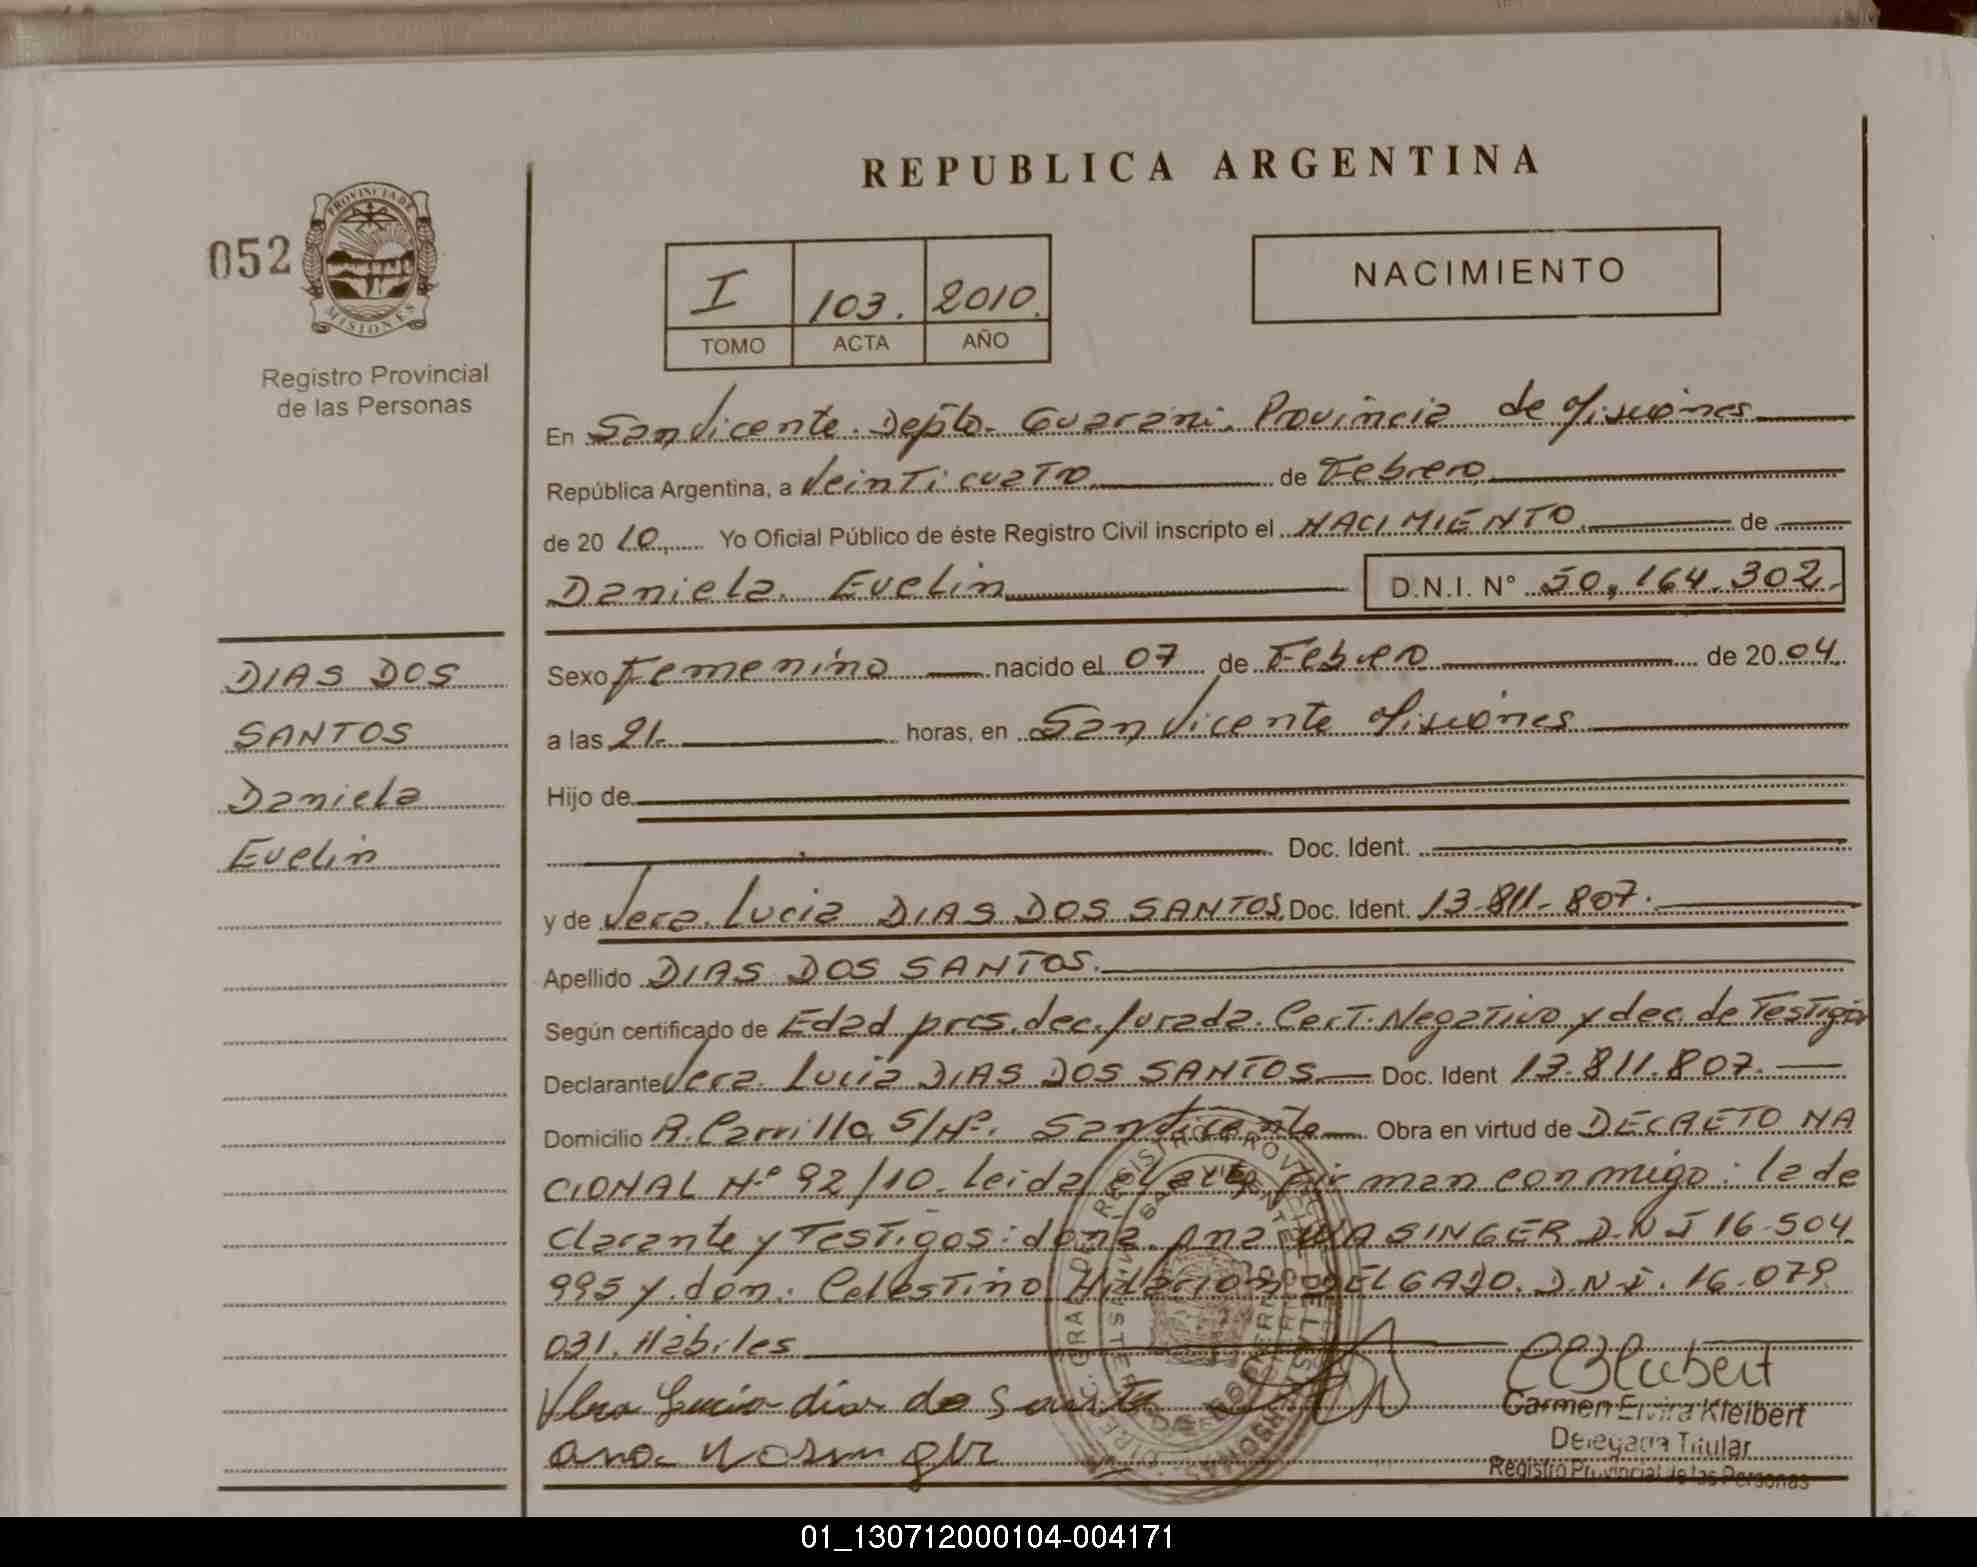 REPUBLICA ARGENTINA
052
PROVINCIA DE
MISIONES
Registro Provincial
de las Personas
I 103. 2010.
TOMO ACTA AÑO
NACIMIENTO
En San Vicente. Depto. Guarani. Provincia de Misiones
República Argentina, a Veinticuatro de Febrero
de 20 10. Yo Oficial Público de éste Registro Civil inscripto el NACIMIENTO de
Daniela Evelin D.N.I. N° 50.164.302.
DIAS DOS
SANTOS
Daniela
Evelin
Sexo Femenino nacido el 07 de Febrero de 20 04.
a las 21. horas, en San Vicente Misiones
Hijo de
Doc. Ident.
y de Vera Lucia DIAS DOS SANTOS Doc. Ident. 13.811.807.
Apellido DIAS DOS SANTOS.
Según certificado de Edad pres. dec. Jurada. Cert. Negativo y dec. de Testigos
Declarante Vera Lucia DIAS DOS SANTOS Doc. Ident 13.811.807.
Domicilio R. Carrillo S/Nº. San Vicente Obra en virtud de DECRETO NA
CIONAL Nº 92/10. Leida el acta firman conmigo: la de
clarante y Testigos: doña Ana WASINGER D.N.I 16.504
995 y don. Celestino Hilarion DELGADO. D.N.I. 16.079
031. Habiles
Vera Lucia dias do Santo
ana Wasinger
Carmen Elvira Kleibert
Delegada Titular
Registro Provincial de las Personas
01_130712000104-004171